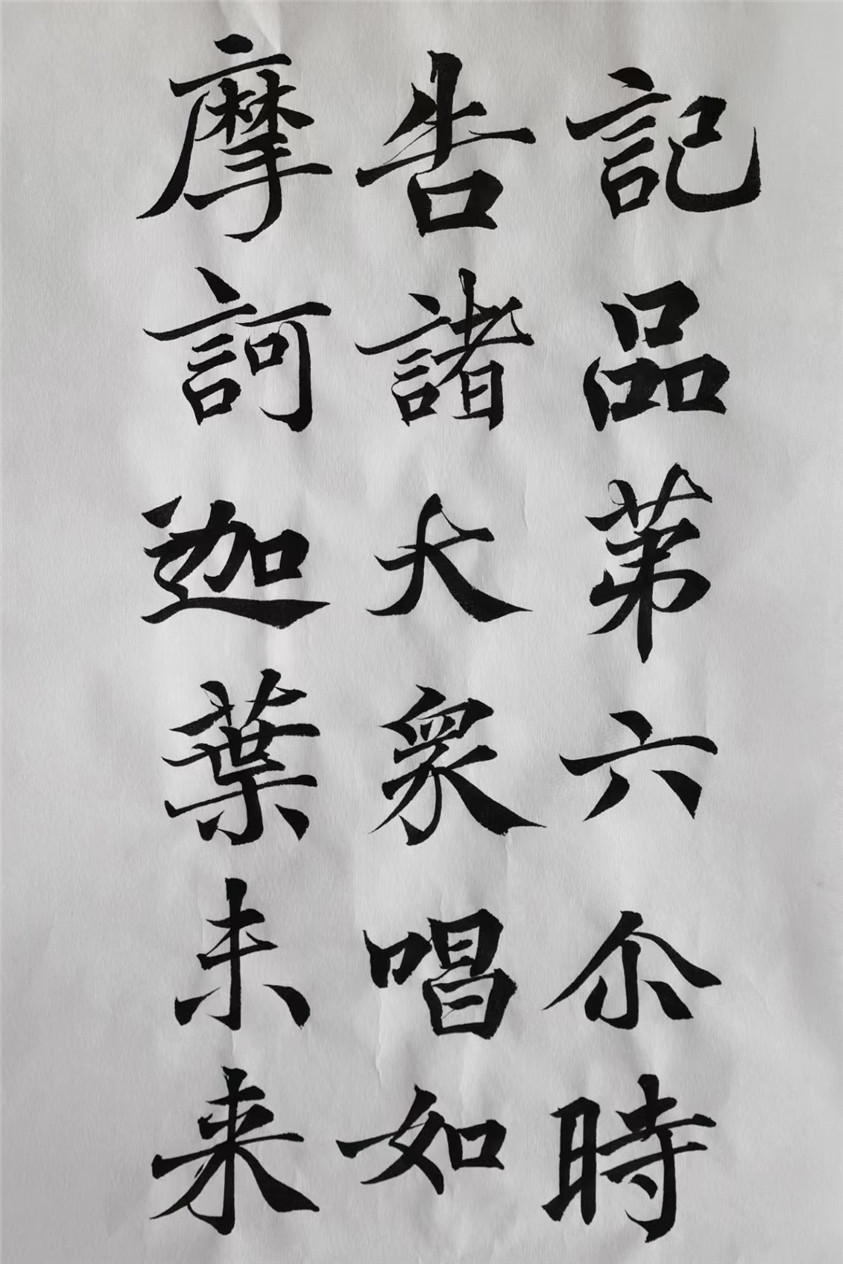 記品第六尒時
告諸大衆唱如
摩訶迦葉未来